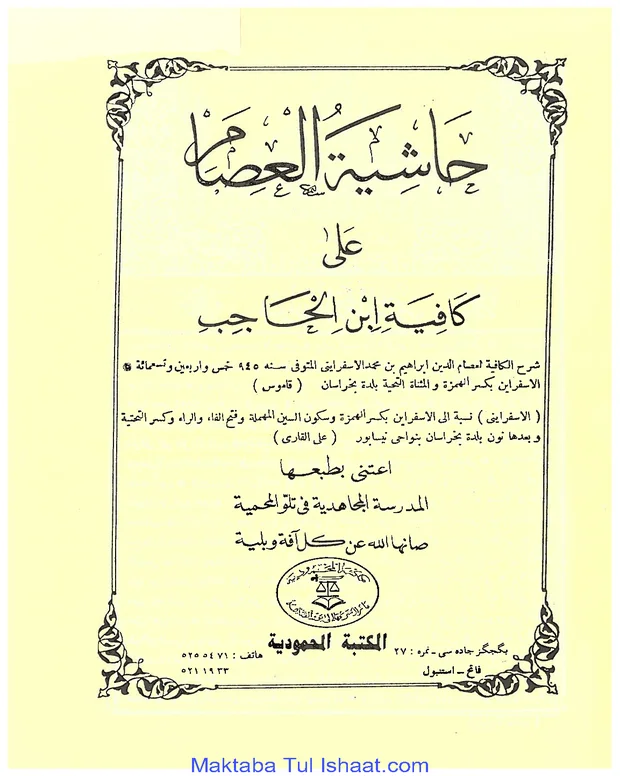 حَاشِيَةُ الْعِصَامِ
عَلَى
كَافِيَةِ ابْنِ الْحَاجِبِ
شرح الكافية لعصام الدين ابراهيم بن محمد الاسفراينى المتوفى سنه ٩٤٥ خمس واربعين وتسعمائة
الاسفراين بكسر الهمزة والمثناة التحتية بلدة بخراسان ( قاموس )
( الاسفراينى ) نسبة الى الاسفراين بكسر الهمزة وسكون السين المهملة وفتح الفاء والراء وكسر التحتية
وبعدها نون بلدة بخراسان بنواحى نيسابور ( على القارى )
اعتنى بطبعها
المدرسة المجاهدية فى تلو المحمية
صانها الله عن كل آفة وبلية
المكتبة المحمودية
بگجگز جاده سى - نمره : ٢٧ هاتف : ٥٢٥ ٥٤ ٧١
فاتح - استنبول ٥٢١ ١٩ ٣٣
Maktaba Tul Ishaat.com